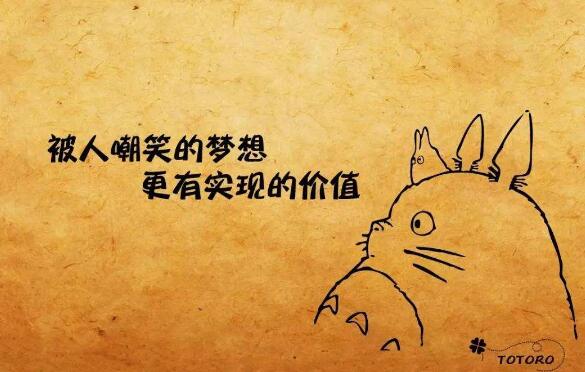 被人嘲笑的梦想
更有实现的价值
TOTORO